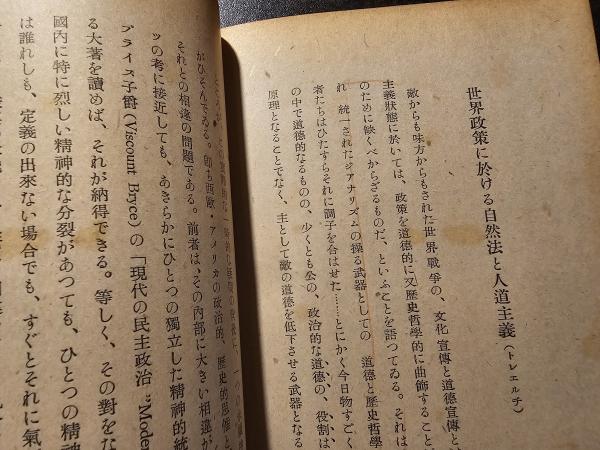 世界政策に於ける自然法と人道主義（トレエルチ）
敵からも味方からもされた世界戰爭の、文化宣傳と道德宣傳とは
主義狀態に於いては、政策を道德的に又歷史哲學的に曲飾すること
のために缺くべからざるものだ、といふことを語つてゐる。それは
れ　統一されたジアナリズムの操る武器としての　道德と歷史哲學
者たちはひたすらそれに調子を合はせた……とにかく今日物すごく
の中で道德的なるものの、少くとも公の、政治的な道德の、役割は
原理となることでなく、主として敵の道德を低下させる武器となる
がひそんでゐる。卽ち西歐・アメリカの政治的、歷史的思惟と
それとの相違の問題である。前者は、その內部に大きい相違が
ツの考に接近しても、あきらかにひとつの獨立した精神的統
ブライス子爵（Viscount Bryce）の「現代の民主政治 "Mode
る大著を讀めば、それが納得できる。等しく、その對をな
國內に特に烈しい精神的な分裂があつても、ひとつの精神
は誰れしも、定義の出來ない場合でも、すぐとそれに氣